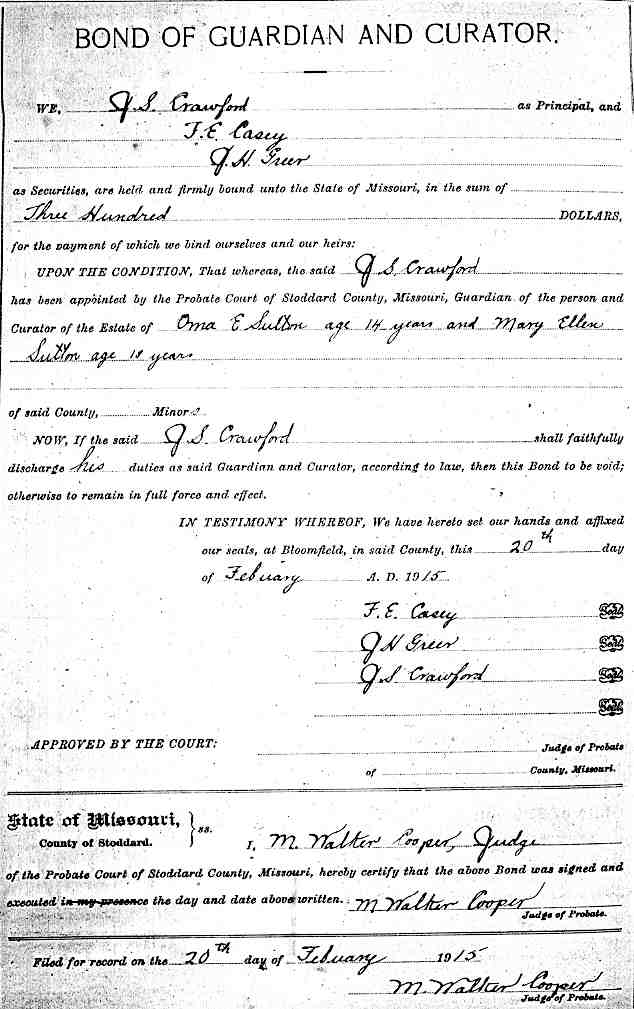 BOND OF GUARDIAN AND CURATOR.
WE, J. S. Crawford as Principal, and
F. E. Casey
J. H. Greer
as Securities, are held and firmly bound unto the State of Missouri, in the sum of
Three Hundred DOLLARS,
for the payment of which we bind ourselves and our heirs:
UPON THE CONDITION, That whereas, the said J S Crawford
has been appointed by the Probate Court of Stoddard County, Missouri, Guardian of the person and
Curator of the Estate of Oma E Sutton age 14 years and Mary Ellen
Sutton age 18 years
of said County, Minors
NOW, If the said J S. Crawford shall faithfully
discharge his duties as said Guardian and Curator, according to law, then this Bond to be void;
otherwise to remain in full force and effect.
IN TESTIMONY WHEREOF, We have hereto set our hands and affixed
our seals, at Bloomfield, in said County, this 20th day
of Febuary A. D. 1915
F. E. Casey Seal
J H Greer Seal
J. S. Crawford Seal
Seal
APPROVED BY THE COURT: Judge of Probate
of County, Missouri.
State of Missouri, } ss.
County of Stoddard. I, M. Walter Cooper, Judge
of the Probate Court of Stoddard County, Missouri, hereby certify that the above Bond was signed and
executed in my presence the day and date above written. M Walter Cooper
Judge of Probate.
Filed for record on the 20th day of Febuary 1915
M. Walter Cooper
Judge of Probate.